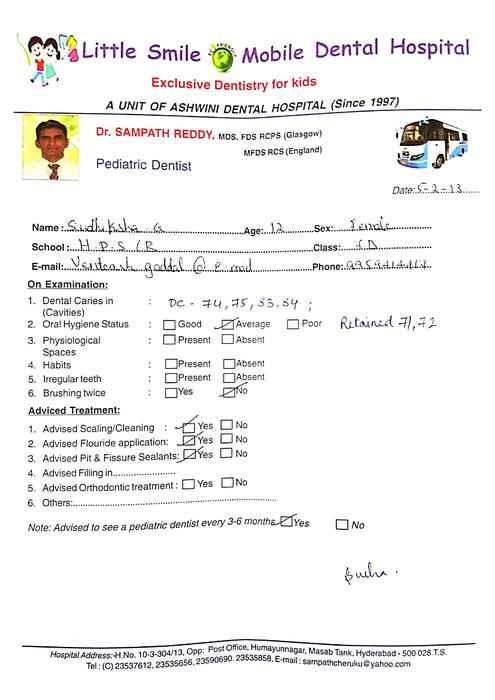 Little Smile Mobile Dental Hospital
Exclusive Dentistry for kids
A UNIT OF ASHWINI DENTAL HOSPITAL (Since 1997)
Dr. SAMPATH REDDY, MDS, FDS RCPS (Glasgow)
MFDS RCS (England)
Pediatric Dentist
Date: 5-2-13
Name: Sudhiksha G Age: 12 Sex: Female
School: H.P.S/R Class: D
E-mail: Phone:
On Examination:
1. Dental Caries in (Cavities) : DC - 74, 75, 53, 54 ;
2. Oral Hygiene Status : Good Average Poor Retained 71, 72
3. Physiological Spaces : Present Absent
4. Habits : Present Absent
5. Irregular teeth : Present Absent
6. Brushing twice : Yes No
Adviced Treatment:
1. Advised Scaling/Cleaning : Yes No
2. Advised Flouride application: Yes No
3. Advised Pit & Fissure Sealants: Yes No
4. Advised Filling in
5. Advised Orthodontic treatment : Yes No
6. Others:
Note: Advised to see a pediatric dentist every 3-6 months Yes No
Hospital Address:-H.No. 10-3-304/13, Opp: Post Office, Humayunnagar, Masab Tank, Hyderabad - 500 028.T.S.
Tel : (C) 23537612, 23535656, 23590690. 23535858, E-mail : sampathcheruku@yahoo.com